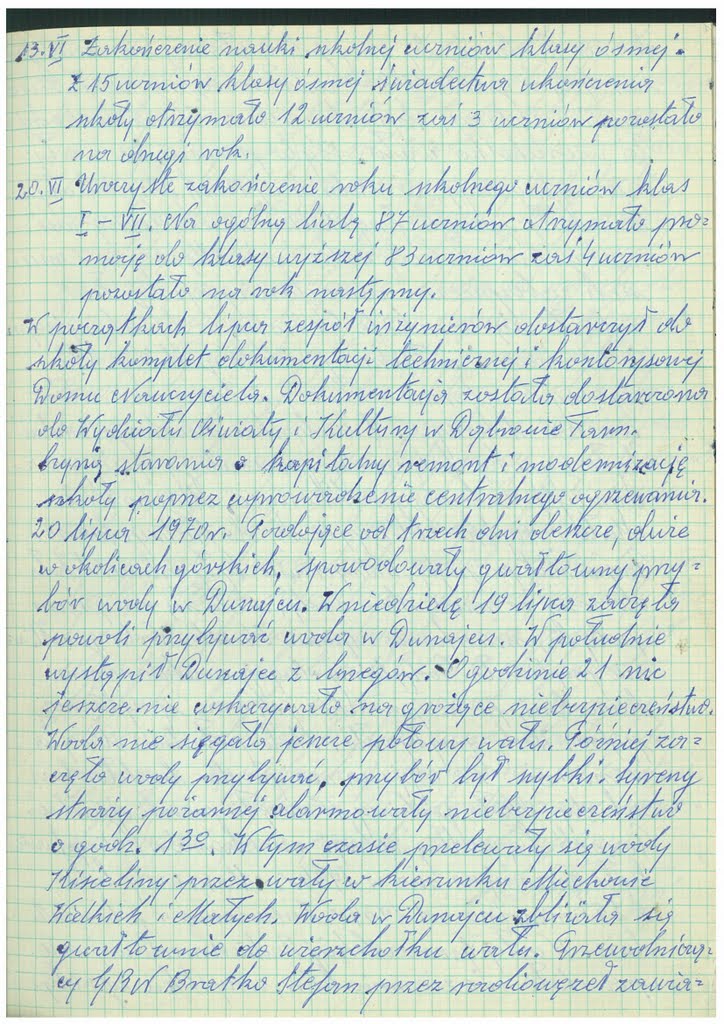 13.VI Zakończenie nauki szkolnej uczniów klasy ósmej.
Z 15 uczniów klasy ósmej świadectwa ukończenia
szkoły otrzymało 12 uczniów zaś 3 uczniów pozostało
na drugi rok.
20.VI Uroczyste zakończenie roku szkolnego uczniów klas
I – VII. Na ogólną liczbę 87 uczniów otrzymało pro-
mocję do klasy wyższej 83 uczniów zaś 4 uczniów
pozostało na rok następny.
W początkach lipca zespół inżynierów dostarczył do
szkoły komplet dokumentacji technicznej i kosztorysowej
Domu Nauczyciela. Dokumentacja została dostarczona
do Wydziału Oświaty i Kultury w Dąbrowie Tarn.
Czynią starania o kapitalny remont i modernizację
szkoły poprzez wprowadzenie centralnego ogrzewania.
20 lipca 1970r. Padające od trzech dni deszcze, duże
w okolicach górskich, spowodowały gwałtowny przy-
bór wody w Dunajcu. W niedzielę 19 lipca zaczęła
powoli przybywać woda w Dunajcu. W południe
wystąpił Dunajec z brzegów. O godzinie 21 nic
jeszcze nie wskazywało na grożące niebezpieczeństwo.
Woda nie sięgała jeszcze połowy wału. Później za-
częło wody przybywać, przybór był szybki. Syreny
straży pożarnej alarmowały niebezpieczeństwo
o godz. 1 30. W tym czasie przelewały się wody
Kisieliny przez wały w kierunku Miechowic
Wielkich i Małych. Woda w Dunajcu zbliżała się
gwałtownie do wierzchołku wału. Przewodniczą-
cy GRN Bratko Stefan przez radiowęzeł zawia-